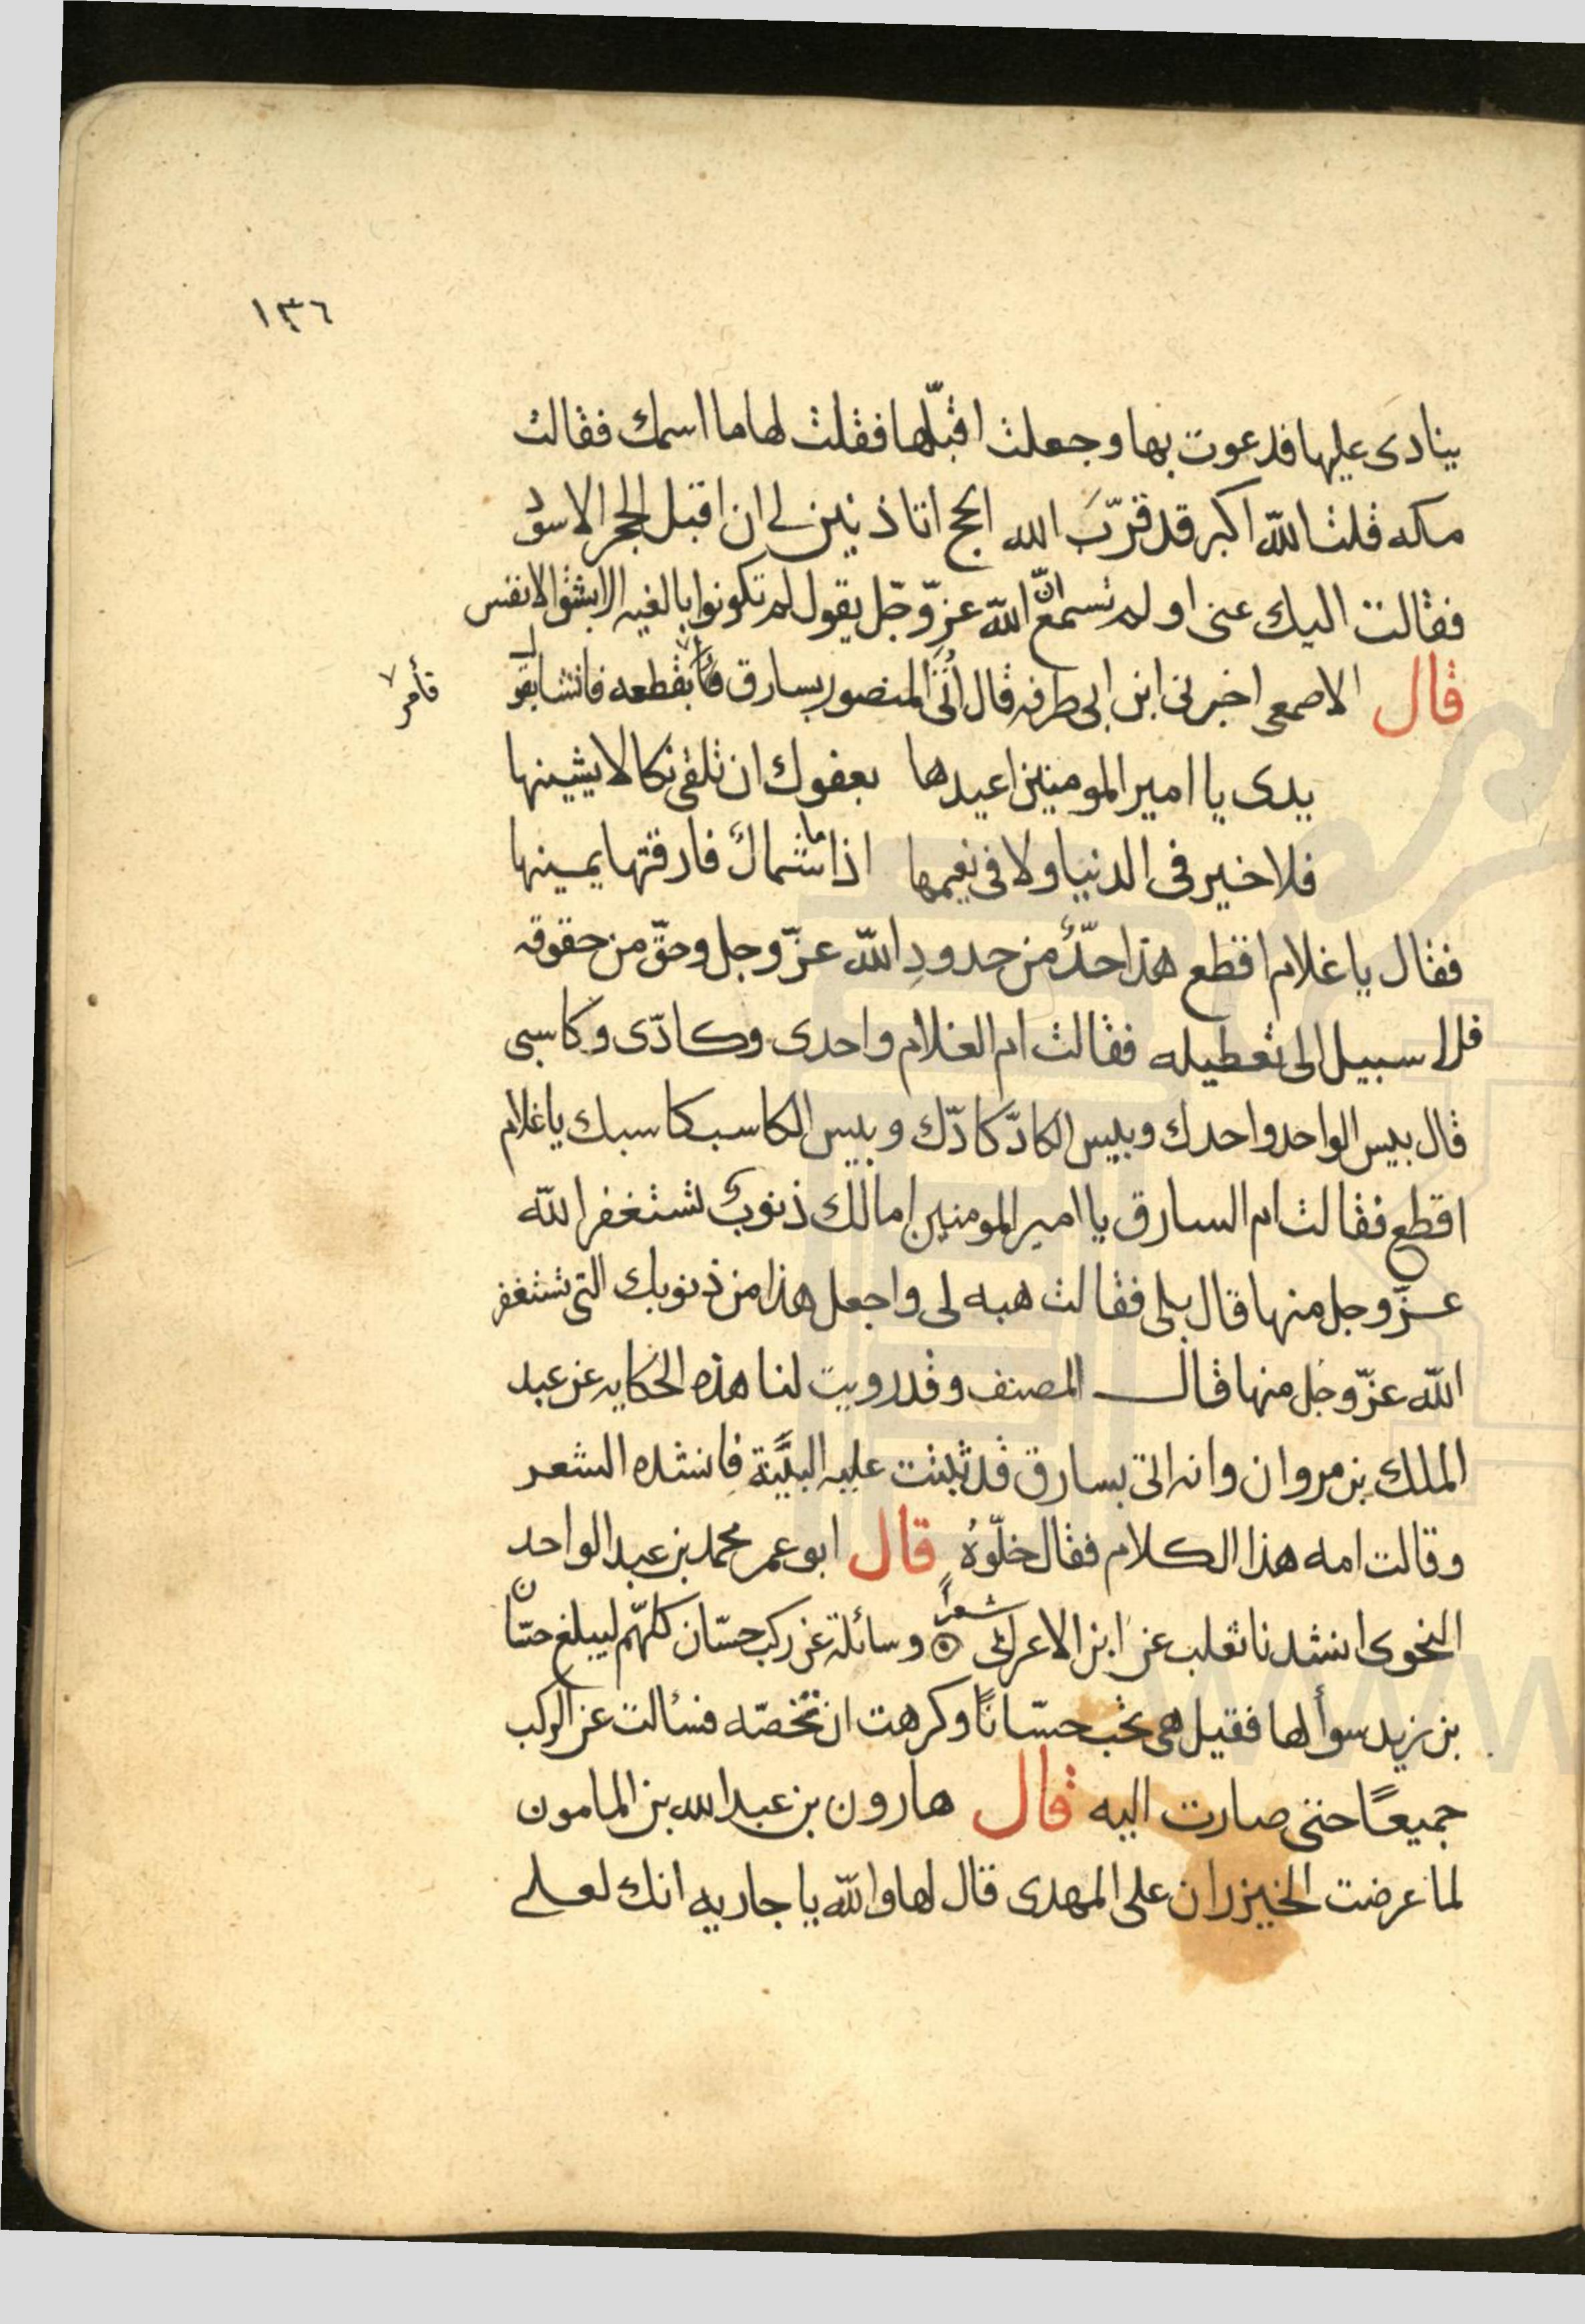 ١٣٦
ينادى عليها فدعوت بها وجعلت اقبّلها فقلت لها ما اسمك فقالت
مكه قلت الله اكبر قد قرّبَ الله الحج اتاذنين لى ان اقبل الحجر الاسود
فقالت اليك عنى او لم تسمع انّ الله عزّ وجّل يقول لم تكونوا بالغيه الا بشق الانفس
قال الاصمعى اخبرنى ابن ابى طرفه قال اُتى المنصور بسارق فأمر بقطعه فانشا يقول
فأمر
يدى يا امير المومنين اعيدها بعفوك ان تلقى نكالا يشينها
فلا خير فى الدنيا ولا فى نعيمها اذا ما شمالٌ فارقتها يمينها
فقال يا غلام اقطع هذا حدٌّ من حدودِ الله عزّ وجل وحقّ من حقوقه
فلا سبيل الى تعطيله فقالت ام الغلام واحدى وكادّى وكاسبى
قال بيس الواحد واحدك وبيس الكادّ كادّك وبيس الكاسب كاسبك يا غلام
اقطع فقالت ام السارق يا امير المومنين اما لك ذنوبٌ تستغفر الله
عزّ وجل منها قال بلى فقالت هبه لى واجعل هذا من ذنوبك التى تستغفر
الله عزّ وجل منها قال المصنف وقد رويت لنا هذه الحكايه عن عبد
الملك بن مروان وانه اتى بسارق قد ثبتت عليه البيّنة فانشده الشعر
وقالت امه هذا الكلام فقال خلّوهُ قال ابو عمر محمد بن عبد الواحد
النحوى انشدنا ثعلب عن ابن الاعرابى شعرٌ وسائلة عن ركب حسّان كلهّم ليبلغ حسّان
بن زيد سوألها فقيل هى تحب حسّانًا وكرهت ان تخصّه فسالت عن الركب
جميعًا حتى صارت اليه قال هارون بن عبد الله بن المامون
لما عرضت الخيزران على المهدى قال لها والله يا جاريه انك لعلى